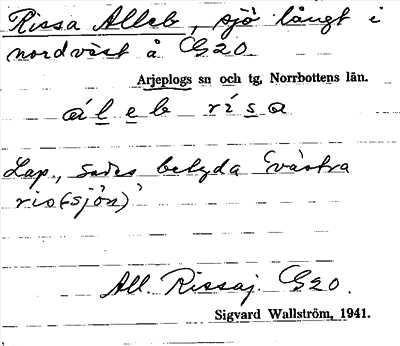 Rissa Alleb, sjö långt i
nordväst å G20
Arjeplogs sn och tg, Norrbottens län.
áleb rísa
Lap., sades betyda 'västra
ris(-sjön)'
All. Rissaj. G20.
Sigvard Wallström, 1941.